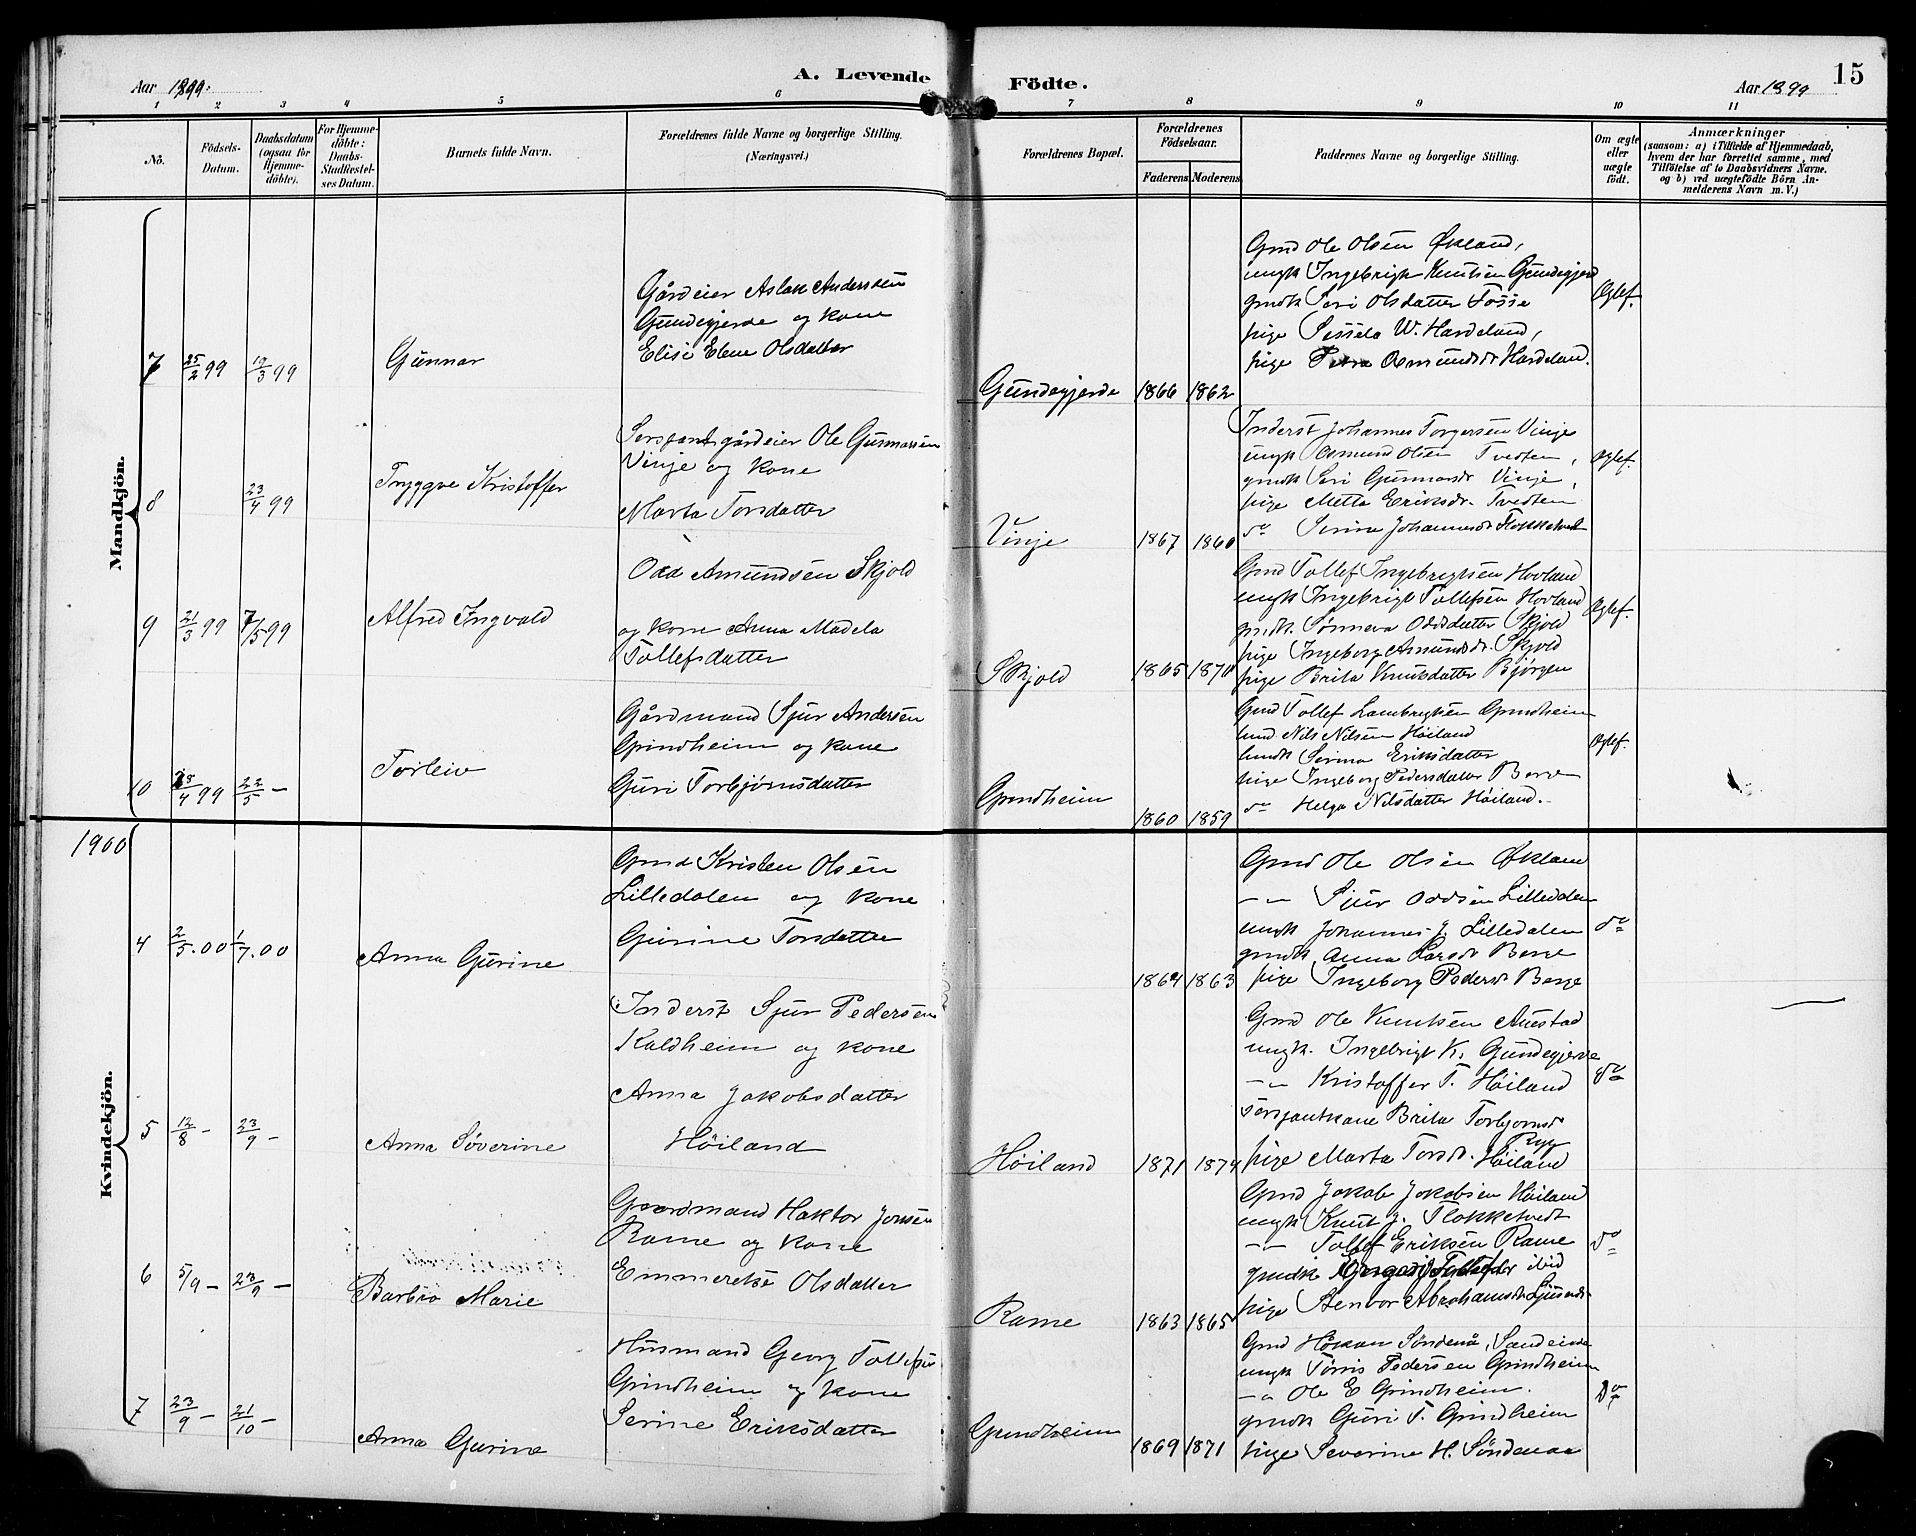 Aar 1899.
A. Levende
Födte.
Aar 1899
15
1 2 3 4 5 6 7 8 9 10 11
No.
Födsels-
Datum.
Daabsdatum
(ogsaa for
Hjemme-
döbte).
For Hjemme-
döbte:
Daabs-
Stadfæstel-
ses Datum.
Barnets fulde Navn.
Forældrenes fulde Navne og borgerlige Stilling.
(Næringsvei.)
Forældrenes Bopæl.
Forældrenes
Födselsaar.
Faderens Moderens
Faddernes Navne og borgerlige Stilling.
Om ægte
eller
uægte
födt.
Anmærkninger
(saasom: a) i Tilfælde af Hjemmedaab,
hvem der har forrettet samme, med
Tilföielse af to Daabsvidners Navne.
og b) ved uægtefödte Börn An-
melderens Navn m. V.)
Mandkjön.
7 25/2 99 19/3 99
Gunnar
Gårdeier Aslak Anderssen
Gundegjerde og kone
Elise Elene Olsdatter
Gundegjerde 1866 1862
Gmd Ole Olsen Økland,
ungk Ingebrigt Knutsen Gundegjerd
gmdk Sori Olsdatter Fosse
pige Sessela W. Hardeland,
pige Petra Osmundsdr Hardeland.
Ægtef.
8 23/4 99
Tryggve Kristoffer
Sersjant gårdeier Ole Gunnarsen
Vinje og kone
Marta Torsdatter
Vinje 1867 1860
Inderst Johannes Torgersen Vinje
ungk Osmund Olsen Tvedten,
gmdk Sori Gunnarsdr Vinje,
pige Metta Eriksdr. Tvedten
do Serine Johannesdr Flokketvedt
Ægtef.
9 21/3 99 7/5 99
Alfred Ingvald
Odd Amundsen Skjold
og kone Anna Madela
Tollefsdatter
Skjold 1865 1870
Gmd Tollef Ingebrigtsen Hovland
ungk Ingebrigt Tollefsen Hovland
gmdk. Sønneva Oddsdatter Skjold
pige Ingeborg Amundsdr. Skjold
pige Brita Knutsdatter Bjørgen
Ægtef.
10 /4 99 22/5 —
Torleiv
Gårdmand Sjur Andersen
Grindheim og kone
Guri Torbjørnsdatter
Grindheim 1860 1859
Gmd Tollef Lambregtsen Grindheim
hmd Nils Nilsen Høiland
hmdk Serina Eriksdatter
pige Ingeborg Pedersdatter Berge
do Helga Nilsdatter Høiland.
Ægtef.
1900
Kvindekjön.
4 2/5.00 1/7.00
Anna Gurine
Gmd Kristen Olsen
Lilledalen og kone
Gurine Torsdatter
1864 1863
Gmd Ole Olsen Økland
—"— Sjur Oddsen Lilledalen
ungk Johannes J. Lilledalen
gmdk Anna Larsdr Berge
pige Ingeborg Pedersdr Berge
do
5 12/8 — 23/9 —
Anna Søverine
Inderst Sjur Pedersen
Kaldheim og kone
Anna Jakobsdatter
Høiland
Høiland 1871 1874
Gmd Ole Knutsen Auestad
ungk. Ingebrigt K. Gundegjerde
—"— Kristoffer T. Høiland
Sersjantkone Brita Torbjørnsd
Ryg
pige Marta Torsdr. Høiland
do
6 5/9 — 23/9 —
Barbro Marie
Gaardmand Haktor Jonsen
Rame og kone
Emmereke Olsdatter
Rame 1863 1865
Gmd Jakob Jakobsen Høiland
ungk Knut J. Flokketvedt
—"— Tollef Eriksen Rame
gmdk ibid
pige Stenvor Abrahamsdr
do
7 23/9 — 21/10 —
Anna Gurine
Husmand Georg Tollefsen
Grindheim og kone
Serine Eriksdatter
Grindheim 1869 1871
Gmd Håkon Søndenå, Sandeide
ungk Tørris Pedersen Grindheim
—"— Ole E Grindheim.
gmdk Guri T. Grindheim
pige Severine H. Søndenaa
Do